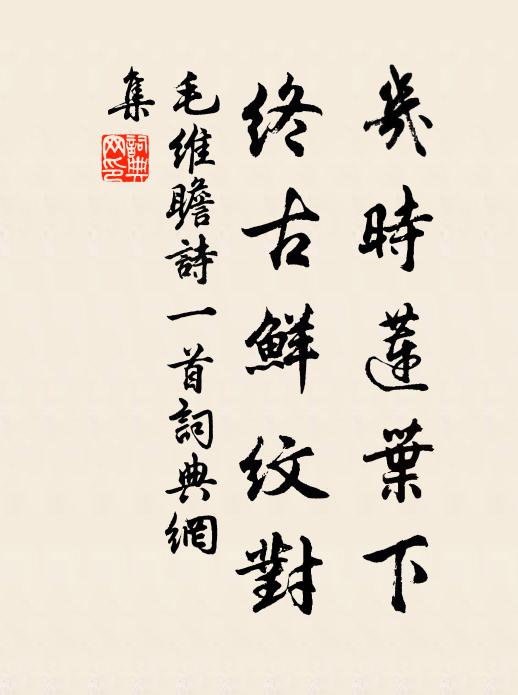 幾時蓮葉下
終古鮮紋對
毛維瞻詩一首詞典網
集
詞典網印